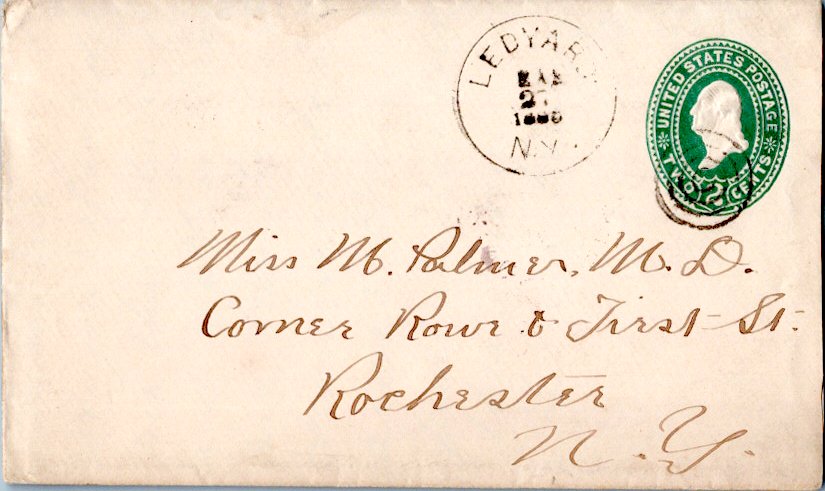 LEDYARD
27
N.Y.
UNITED STATES POSTAGE
TWO CENTS
2
Miss M. Palmer, M. D.
Corner Rowe & First St.
Rochester
N. Y.